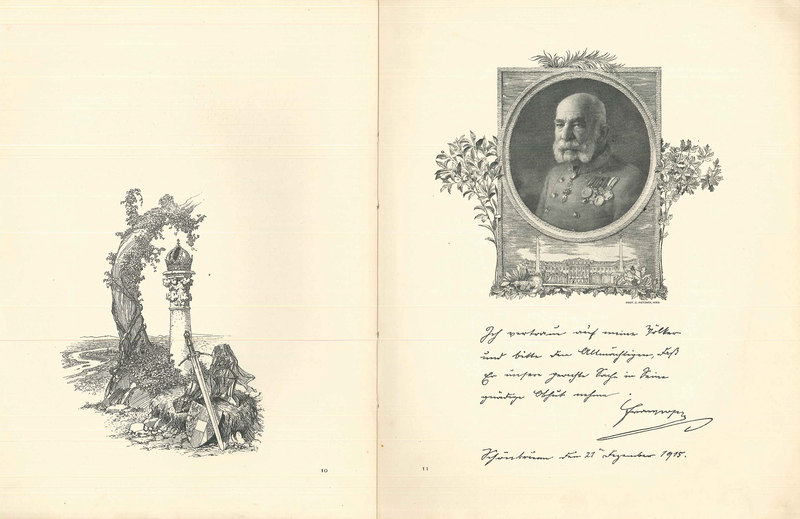 10
Ich vertraue auf meine Völker
und bitte den Allmächtigen, daß
Er unsere gerechte Sache in Seine
gnädige Obhut nehme.
Franz Joseph
Schönbrunn den 21 Dezember 1915.
11